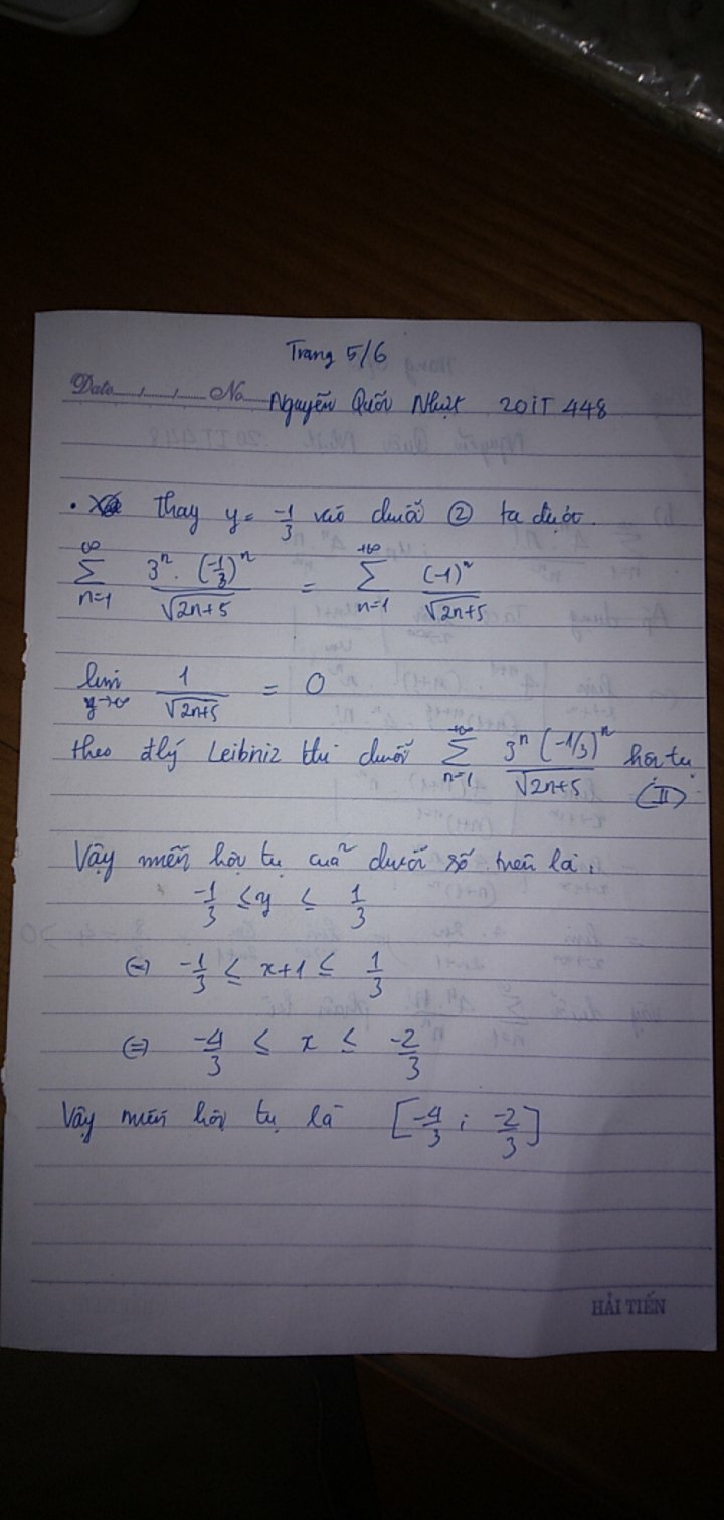 Trang 5/6
Date...,...,... No
Nguyễn Quốc Nhật 20IT448
. thay y = -1/3 vào chuỗi ② ta được.
+∞ ∑ n=1 3^n . (-1/3)^n / √(2n+5) = +∞ ∑ n=1 (-1)^n / √(2n+5)
lim y→∞ 1/√(2n+5) = 0
theo đlý Leibniz thì chuỗi +∞ ∑ n=1 3^n (-1/3)^n / √(2n+5) hội tụ (II)
Vậy miền hội tụ của chuỗi số trên là.
-1/3 ≤ y ≤ 1/3
(=) -1/3 ≤ x+1 ≤ 1/3
(=) -4/3 ≤ x ≤ -2/3
Vậy miền hội tụ là [-4/3 ; -2/3]
HẢI TIẾN